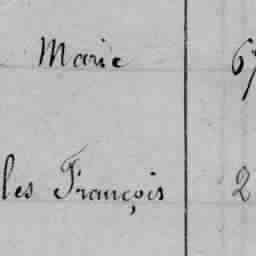 Marie 67
les François 2